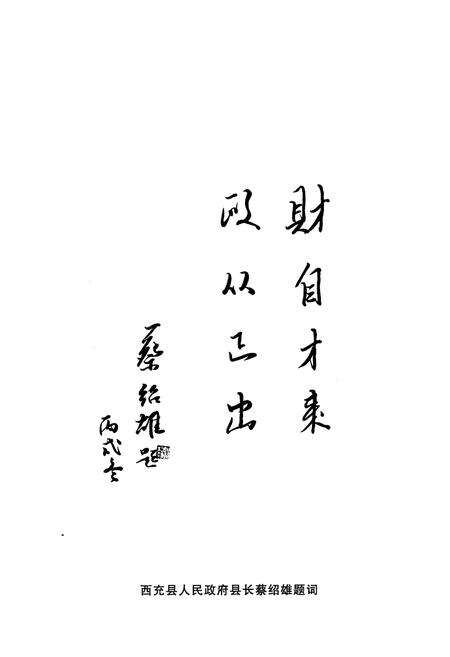 財自才来
政从正出
蔡绍雄题
丙戌冬
西充县人民政府县长蔡绍雄题词